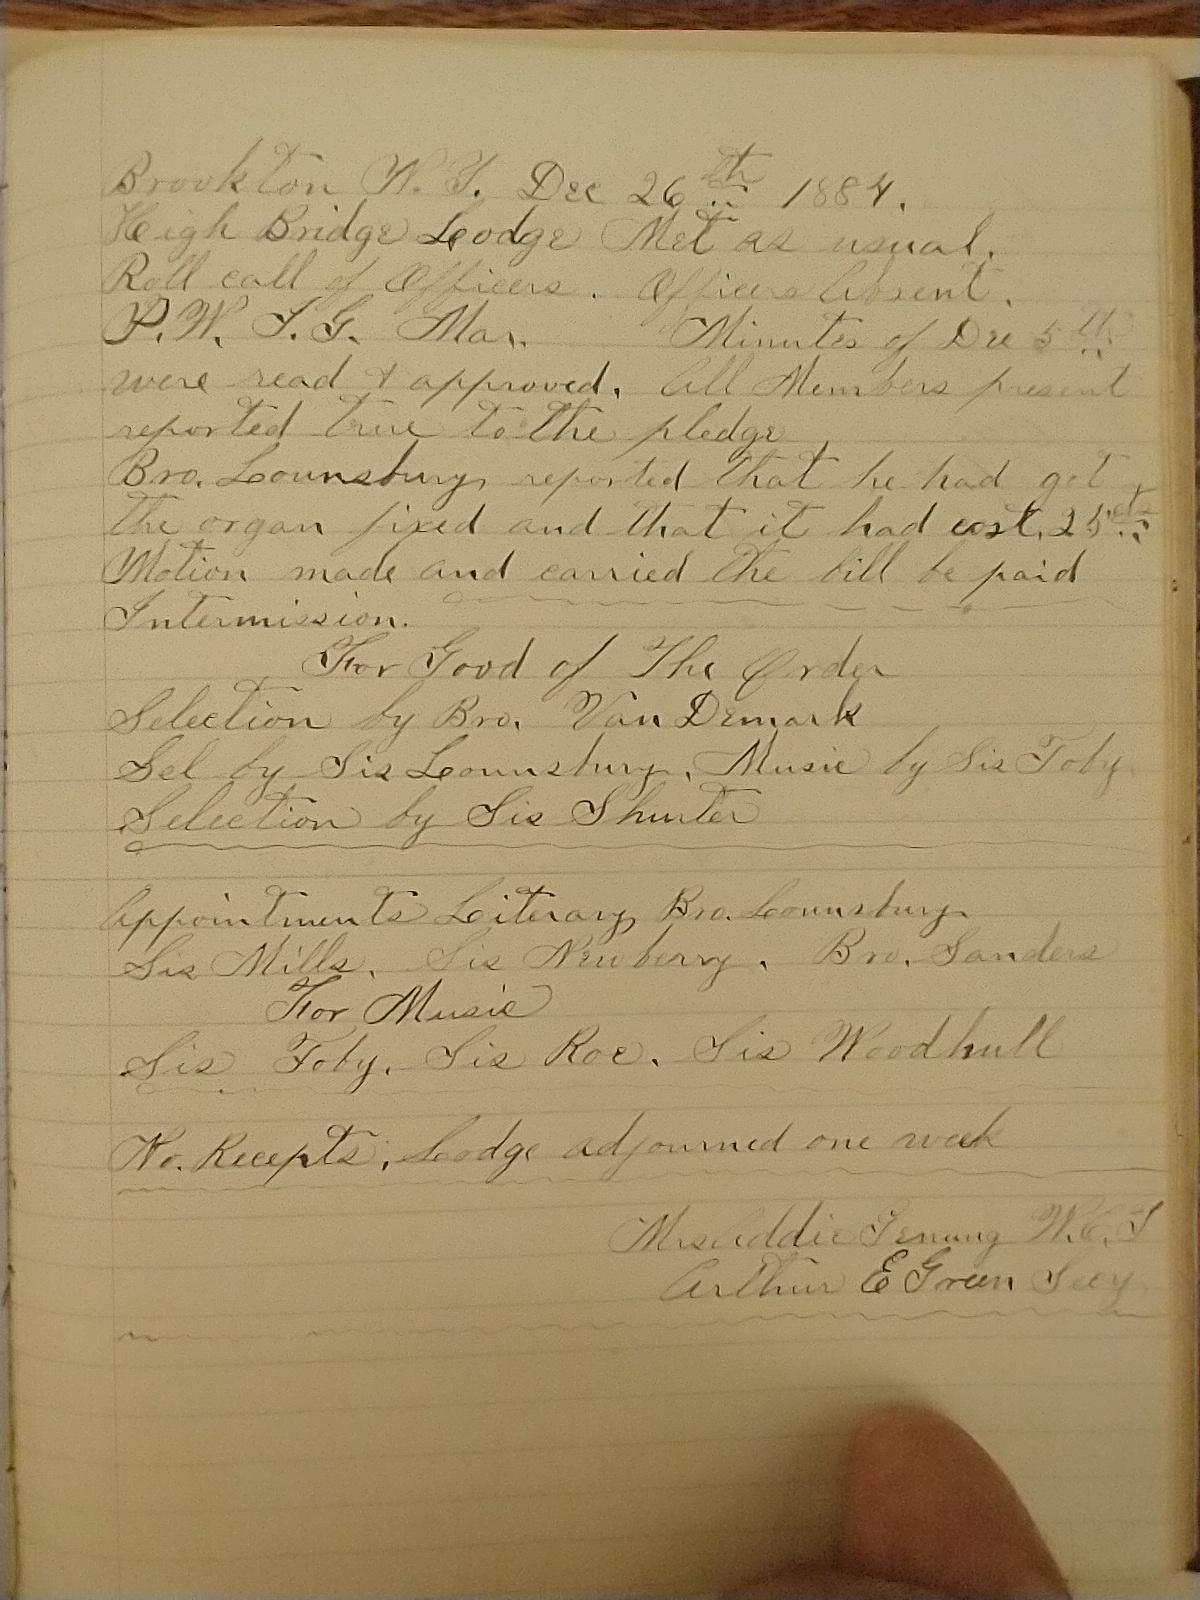 Brookton N.Y. Dec 26th 1884.
High Bridge Lodge Met as usual.
Roll call of Officers. Officers Absent.
P.W. I.G. Mar. Minutes of Dec 5th
were read & approved. All Members present
reported true to the pledge,
Bro. Lounsbury reported that he had got
the organ fixed and that it had cost 25cts
Motion made and carried the bill be paid
Intermission.
For Good of The Order
Selection by Bro. Van Demark
Sel by Sis Lounsbury. Music by Sis Toby
Selection by Sis Shurter
Appointments Literary Bro. Lounsbury
Sis Mills. Sis Newberry. Bro. Sanders
For Music
Sis Toby. Sis Roe. Sis Woodhull
No. Recepts. Lodge adjourned one week
Mrs Addie Genung W.C.T
Arthur E Green Secy